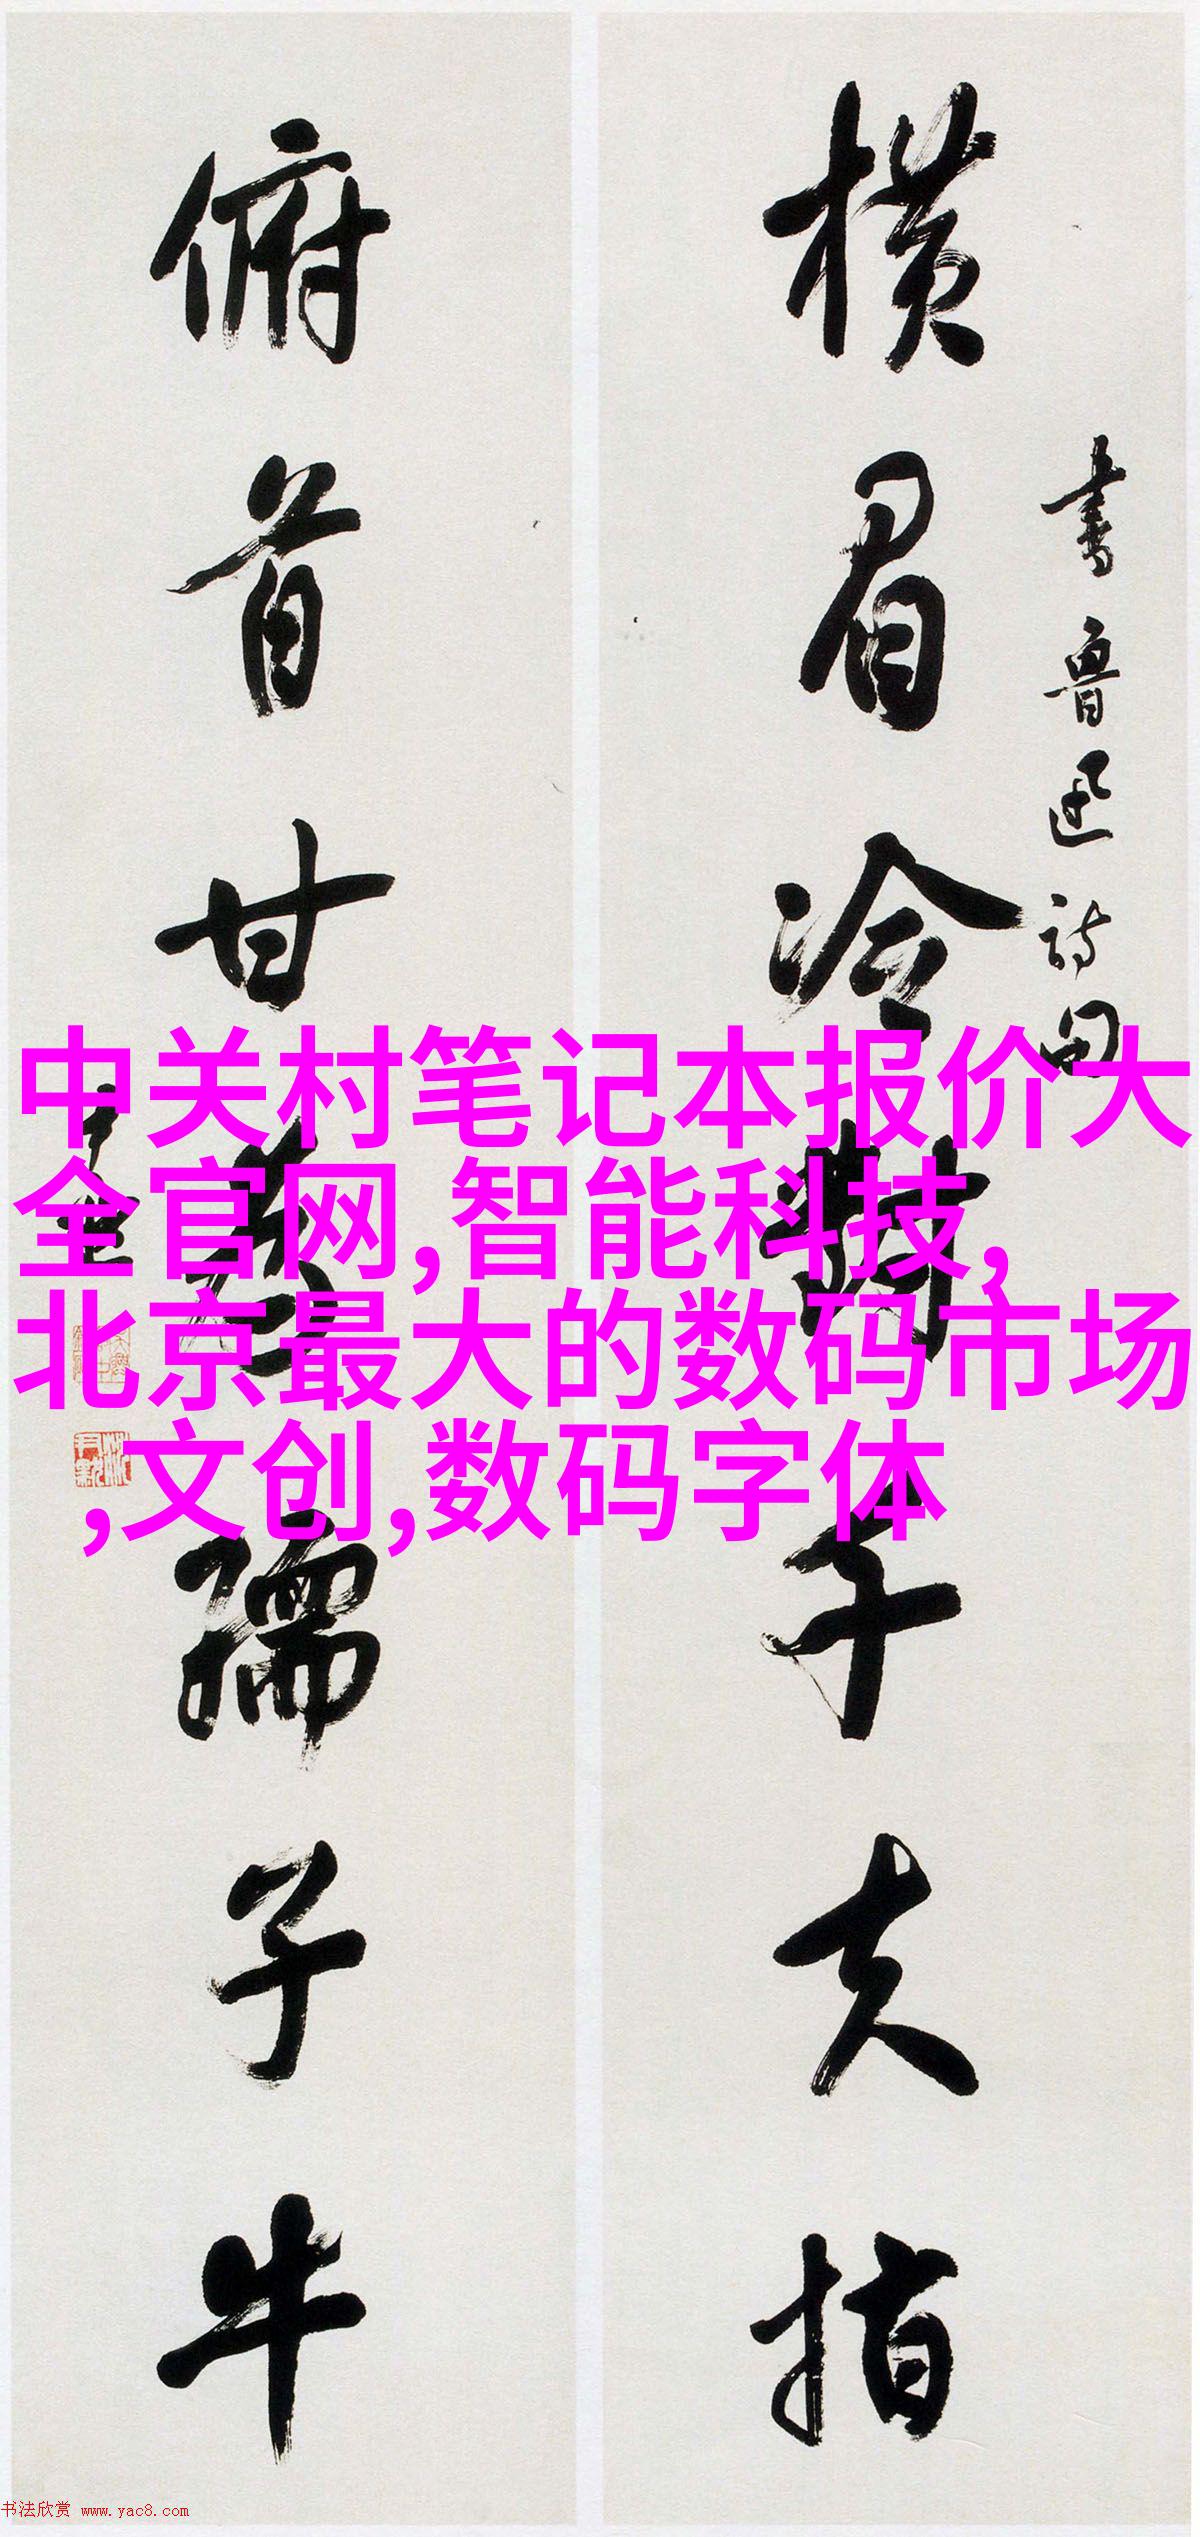 横眉冷對千夫指
书鲁迅诗句
俯首甘為孺子牛
中关村笔记本报价大
全官网,智能科技,
北京最大的数码市场
,文创,数码字体
书法欣赏 www.yac8.com